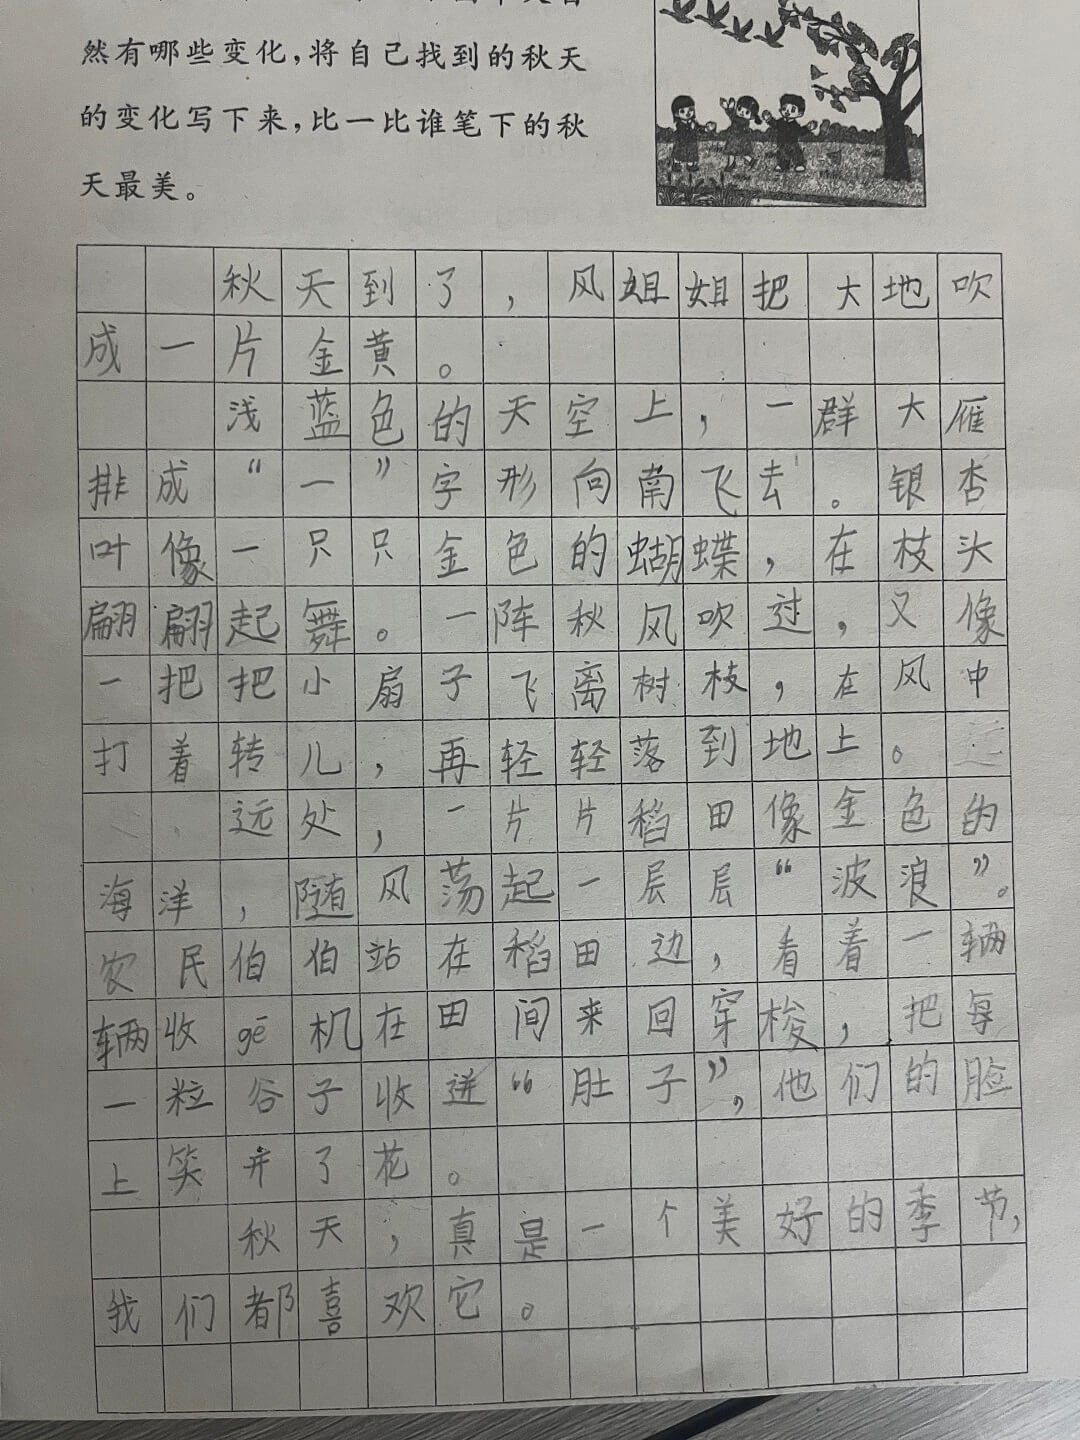 然有哪些变化，将自己找到的秋天
的变化写下来，比一比谁笔下的秋
天最美。
秋天到了，风姐姐把大地吹
成一片金黄。
浅蓝色的天空上，一群大雁
排成“一”字形向南飞去。银杏
叶像一只只金色的蝴蝶，在枝头
翩翩起舞。一阵秋风吹过，又像
一把把小扇子飞离树枝，在风中
打着转儿，再轻轻落到地上。
远处，一片片稻田像金色的
海洋，随风荡起一层层“波浪”。
农民伯伯站在稻田边，看着一辆
辆收gē机在田间来回穿梭，把每
一粒谷子收进“肚子”，他们的脸
上笑开了花。
秋天，真是一个美好的季节，
我们都喜欢它。